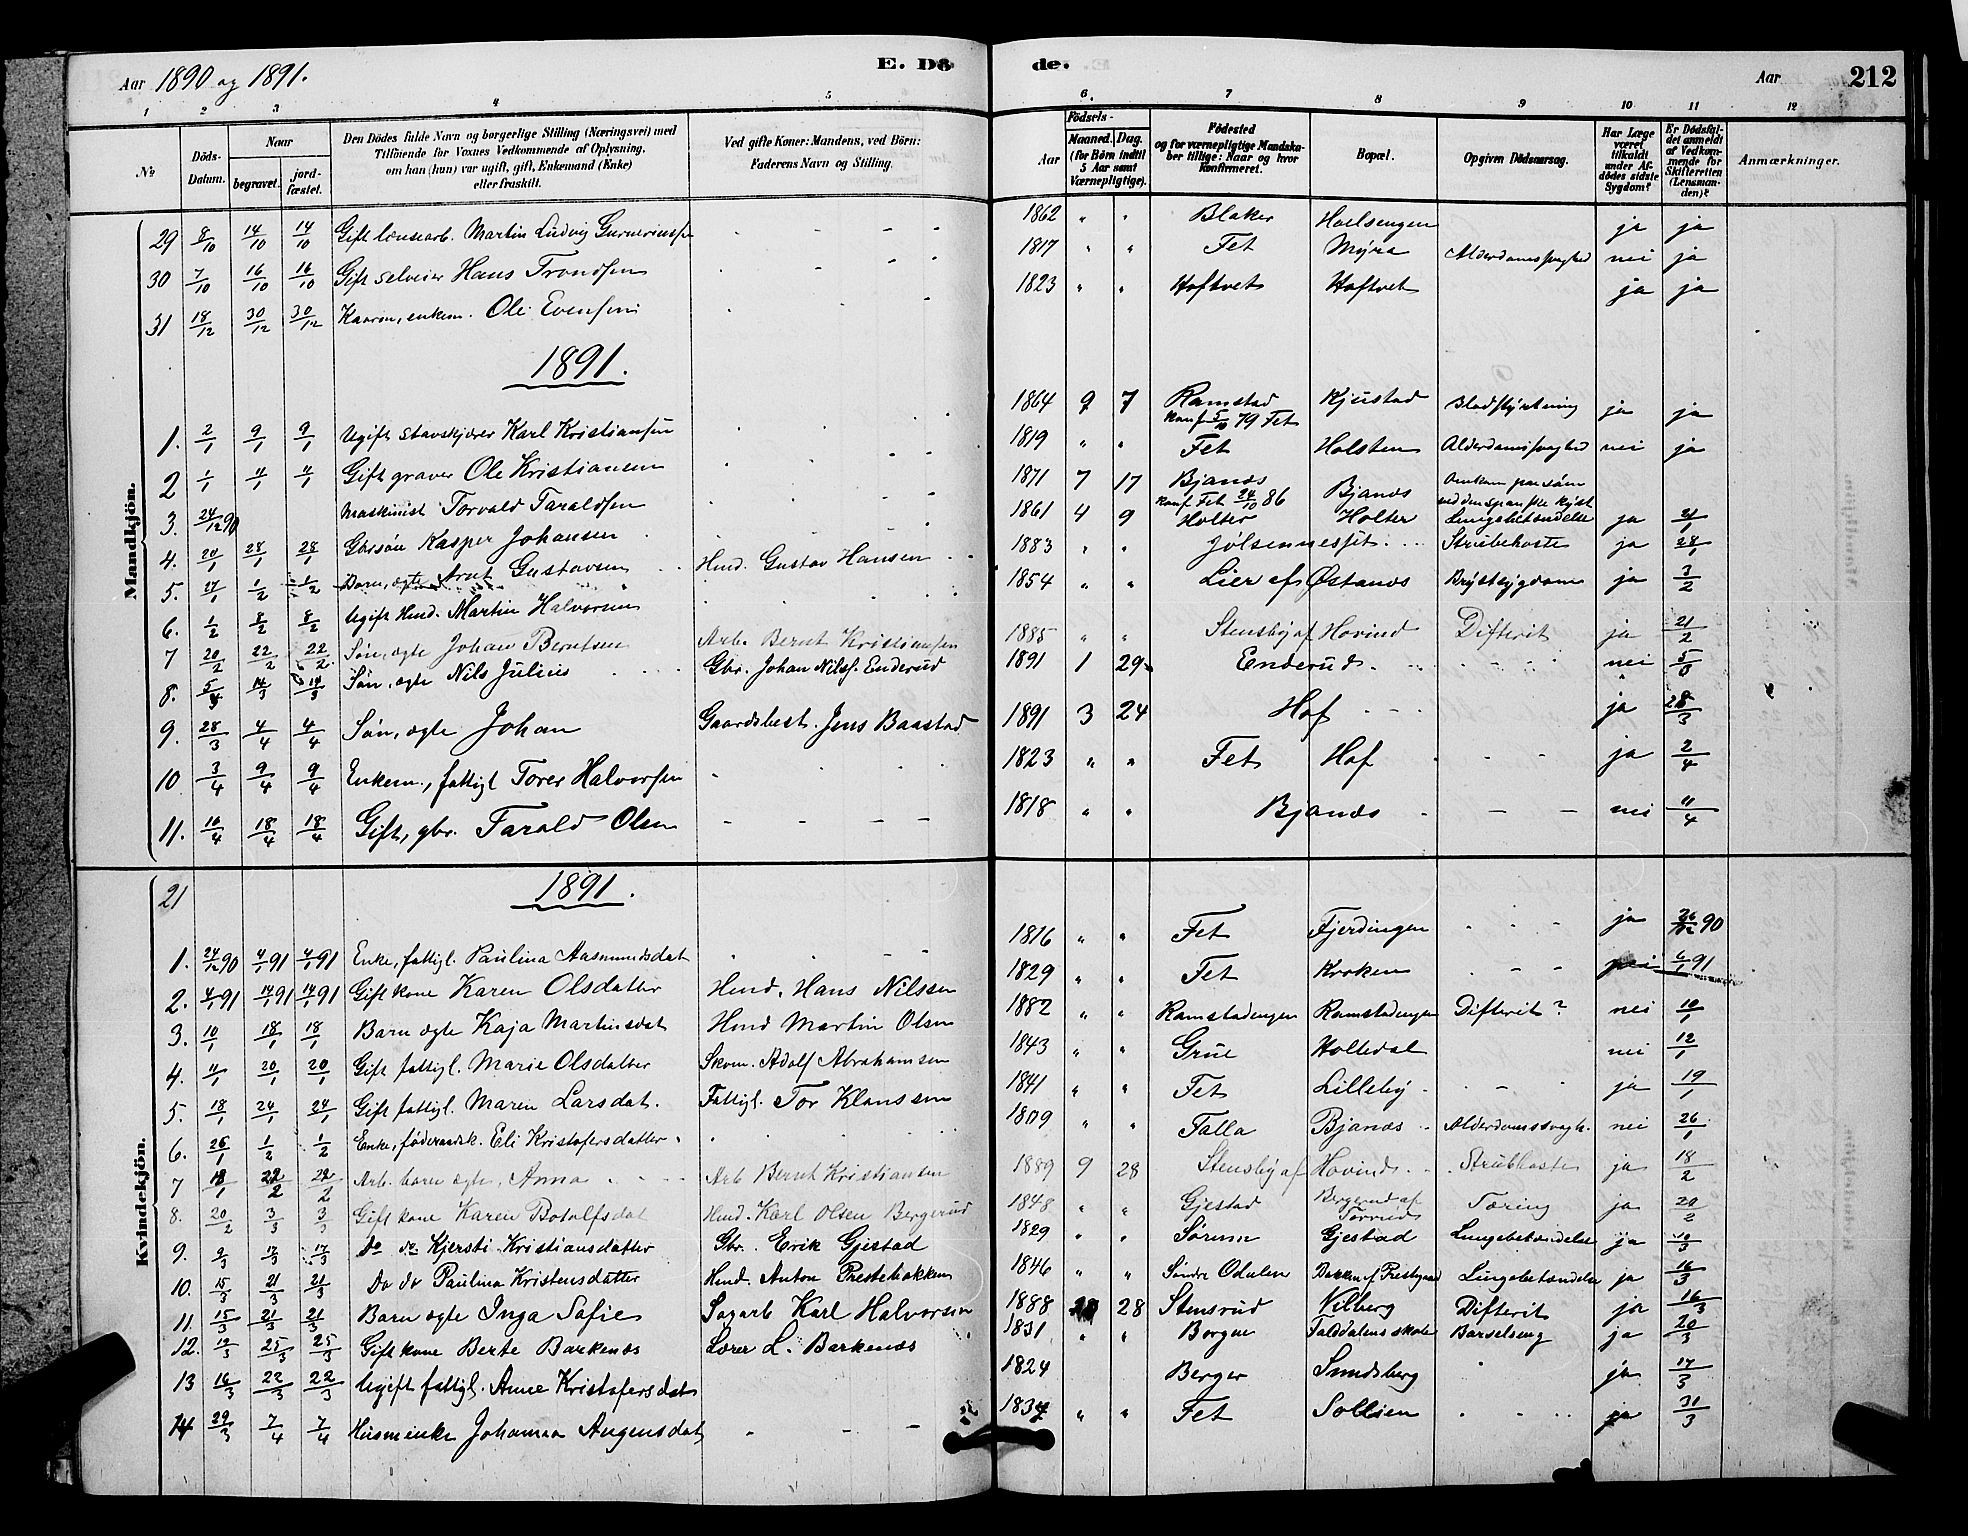 Aar 1890 og 1891. E. Dö de. Aar 212
1 2 3 4 5 6 7 8 9 10 11 12
No
Döds-Datum.
Naar
begravet.
jordfæstet.
Den Dödes fulde Navn og borgerlige Stilling (Næringsvei) med
Tilföiende for Voxnes Vedkommende af Oplysning,
om han (hun) var ugift, gift, Enkemand (Enke)
eller fraskilt.
Ved gifte Koner: Mandens, ved Börn:
Faderens Navn og Stilling.
Födsels-
Aar
Maaned. Dag.
(for Börn indtil
5 Aar samt
Værnepligtige).
Födested
og for værnepligtige Mandskaber tillige: Naar og hvor
Konfirmeret.
Bopæl.
Opgiven Dödsaarsag.
Har Læge
været
tilkaldt
under Afdödes sidste
Sygdom?
Er Dödsfaldet anmeldt
af Vedkommende for
Skifteretten
(Lensmanden)?
Anmærkninger.
Mandkjön.
29 8/10 14/10 14/10 Gift Martin Ludvig 1862 " " Blaker ja ja
30 7/10 16/10 16/10 Gift selveier Hans Trondsen 1817 " " Fet Myra nei ja
31 18/12 30/12 30/12 enkem. Ole Evensen 1823 " " Hoftvet Hoftvet ja ja
1891.
1. 2/1 9/1 9/1 Ugift Karl Kristiansen 1864 9 7 Ramstad konf 5/10 79 Fet Kjustad Blodstyrtning ja ja
2 1/1 Gift graver Ole Kristiansen 1819 " " Fet Holsten nei ja
3. 24/12 90 Maskinist Torvald Taraldsen 1871 7 17 Bjanæs konf Fet 24/10 86 Bjanæs Omkom
4. 20/1 28/1 28/1 Gbrsön Kasper Johansen 1861 4 9 Holter Holter Lungebetændelse ja 21/1
5. 1/2 1/2 Barn, ægte Gustavsen Husd. Gustav Hansen 1883 " " Strubehoste ja 28/1
6. 1/2 8/2 8/2 Ugift Husd. Martin Halvorsen 1854 " " Lier af Østanæs Brystsygdom ja 3/2
7 20/2 22/2 22/2 Søn, ægte Johan Berntsen Arb. Bernt Kristiansen 1885 " " Stensby af Hovind Difterit ja 21/2
8. 14/3 14/3 Søn, ægte Nils Julius Gbr. Johan Nilss. Enderud 1891 1 29 Enderud nei
9. 28/3 4/4 4/4 Søn, ægte Johan Gaardsbest. Jens Baastad 1891 3 24 Hof ja 28/3
10 3/4 9/4 9/4 Enkem., fattigl Torer Halvorsen 1823 " " Fet Hof ja 2/4
11. 10/4 18/4 18/4 Gift, gbr. Tarald Olsen 1818 " " Bjanæs nei 11/4
Kvindekjön.
21 1891.
1. 24/12 90 4/1 91 4/1 91 Enke, fattigl. Paulina Aasmundsdat 1816 " " Fet Fjerdingen ja 90
2. 4/1 91 14/1 91 14/1 91 Gift kone Karen Olsdatter Husd. Hans Nilssen 1829 " " Fet Kroken nei 6/1 91
3. 10/1 18/1 18/1 Barn ægte Kaja Martinsdat Husd Martin Olsen 1882 " " Ramstadengen Ramstadengen Difterit? nei 10/1
4. 11/1 20/1 20/1 Gift fattigl. Marie Olsdatter Skom. Adolf Abrahamsen 1843 " " Grue Holtedal nei 12/1
5. 18/1 24/1 24/1 Gift fattigl. Maren Larsdat. Fattigl. Tor Klaussen 1841 " " Fet Lilleby ja 19/1
6. 26/1 1/2 1/2 Enke, föderaadsk. Eli Kristofersdatter 1809 " " Falla Bjanæs Alderdomssvagh. nei 26/1
7 18/1 22/2 22/2 Arb. barn ægte, Anna Arb Bernt Kristiansen 1889 9 28 Stensby af Hovind Strubhoste ja 18/2
8. 20/2 3/3 3/3 Gift kone Karen Botolfsdat Husd. Karl Olsen Bergerud 1848 " " Gjestad Bergerud af Tæring ja 20/2
9. 9/3 17/3 17/3 Do do Kjersti Kristiansdatter Gbr. Erik Gjestad 1829 " " Sørum Gjestad Lungebetændelse ja 10/3
10. 15/3 21/3 21/3 Do do Paulina Kristensdatter Husd. Anton Prestebakken 1846 " " Søndre Odalen Bakken af Prestgaard Lungebetændelse ja 16/3
11. 15/3 21/3 21/3 Barn ægte Inga Sofie Sagarb Karl Halvorsen 1888 28 Stensrud Vilberg Difterit ja 16/3
12. 19/3 25/3 25/3 Gift kone Berte Barkenæs Lærer L. Barkenæs 1831 " " Borgen Falldalens skole Barselseng ja 20/3
13 16/3 22/3 22/3 Ugift fattigl. Anne Kristofersdat 1824 Berger Sundsberg ja 17/3
14 29/3 7/4 7/4 Husm.enke Johanna Augensdat " " Fet Sollien ja 31/3